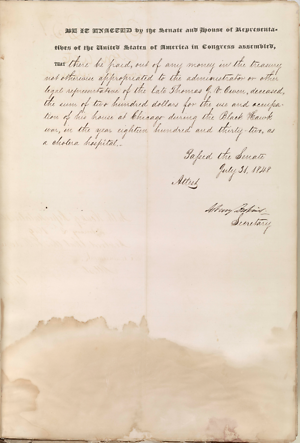 BE IT ENACTED by the Senate and House of Representa-
tives of the United States of America in Congress assembled,
THAT there be paid, out of any money in the treasury
not otherwise appropriated to the administrator or other
legal representative of the late Thomas J. V. Owen, deceased,
the sum of two hundred dollars for the use and occupa-
tion of his house at Chicago during the Black Hawk
war, in the year eighteen hundred and thirty-two, as
a cholera hospital.
Passed the Senate
July 31, 1848
Attest
Secretary